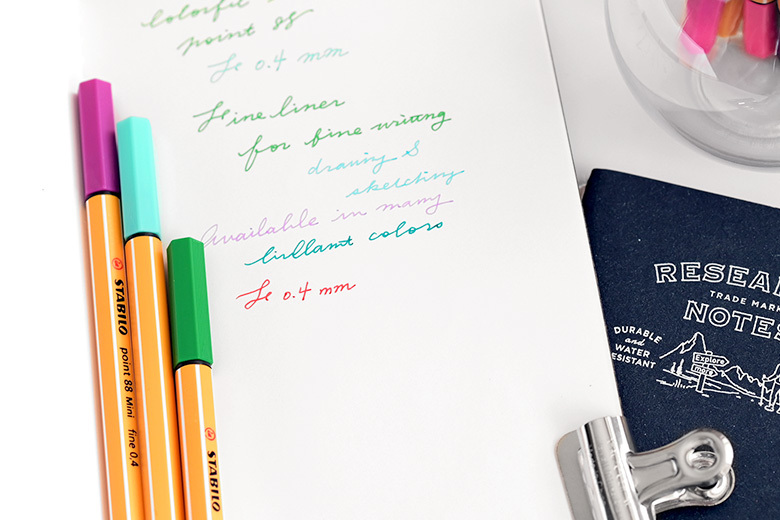 colorful
point 88
fe 0.4 mm
Fine liner
for fine writing
drawing &
sketching
Available in many
brillant colors
fe 0.4 mm
STABILO point 88 Mini fine 0,4
STABILO
RESEAR
TRADE MARK
NOTES
DURABLE
and
WATER
RESISTANT
Explore
more